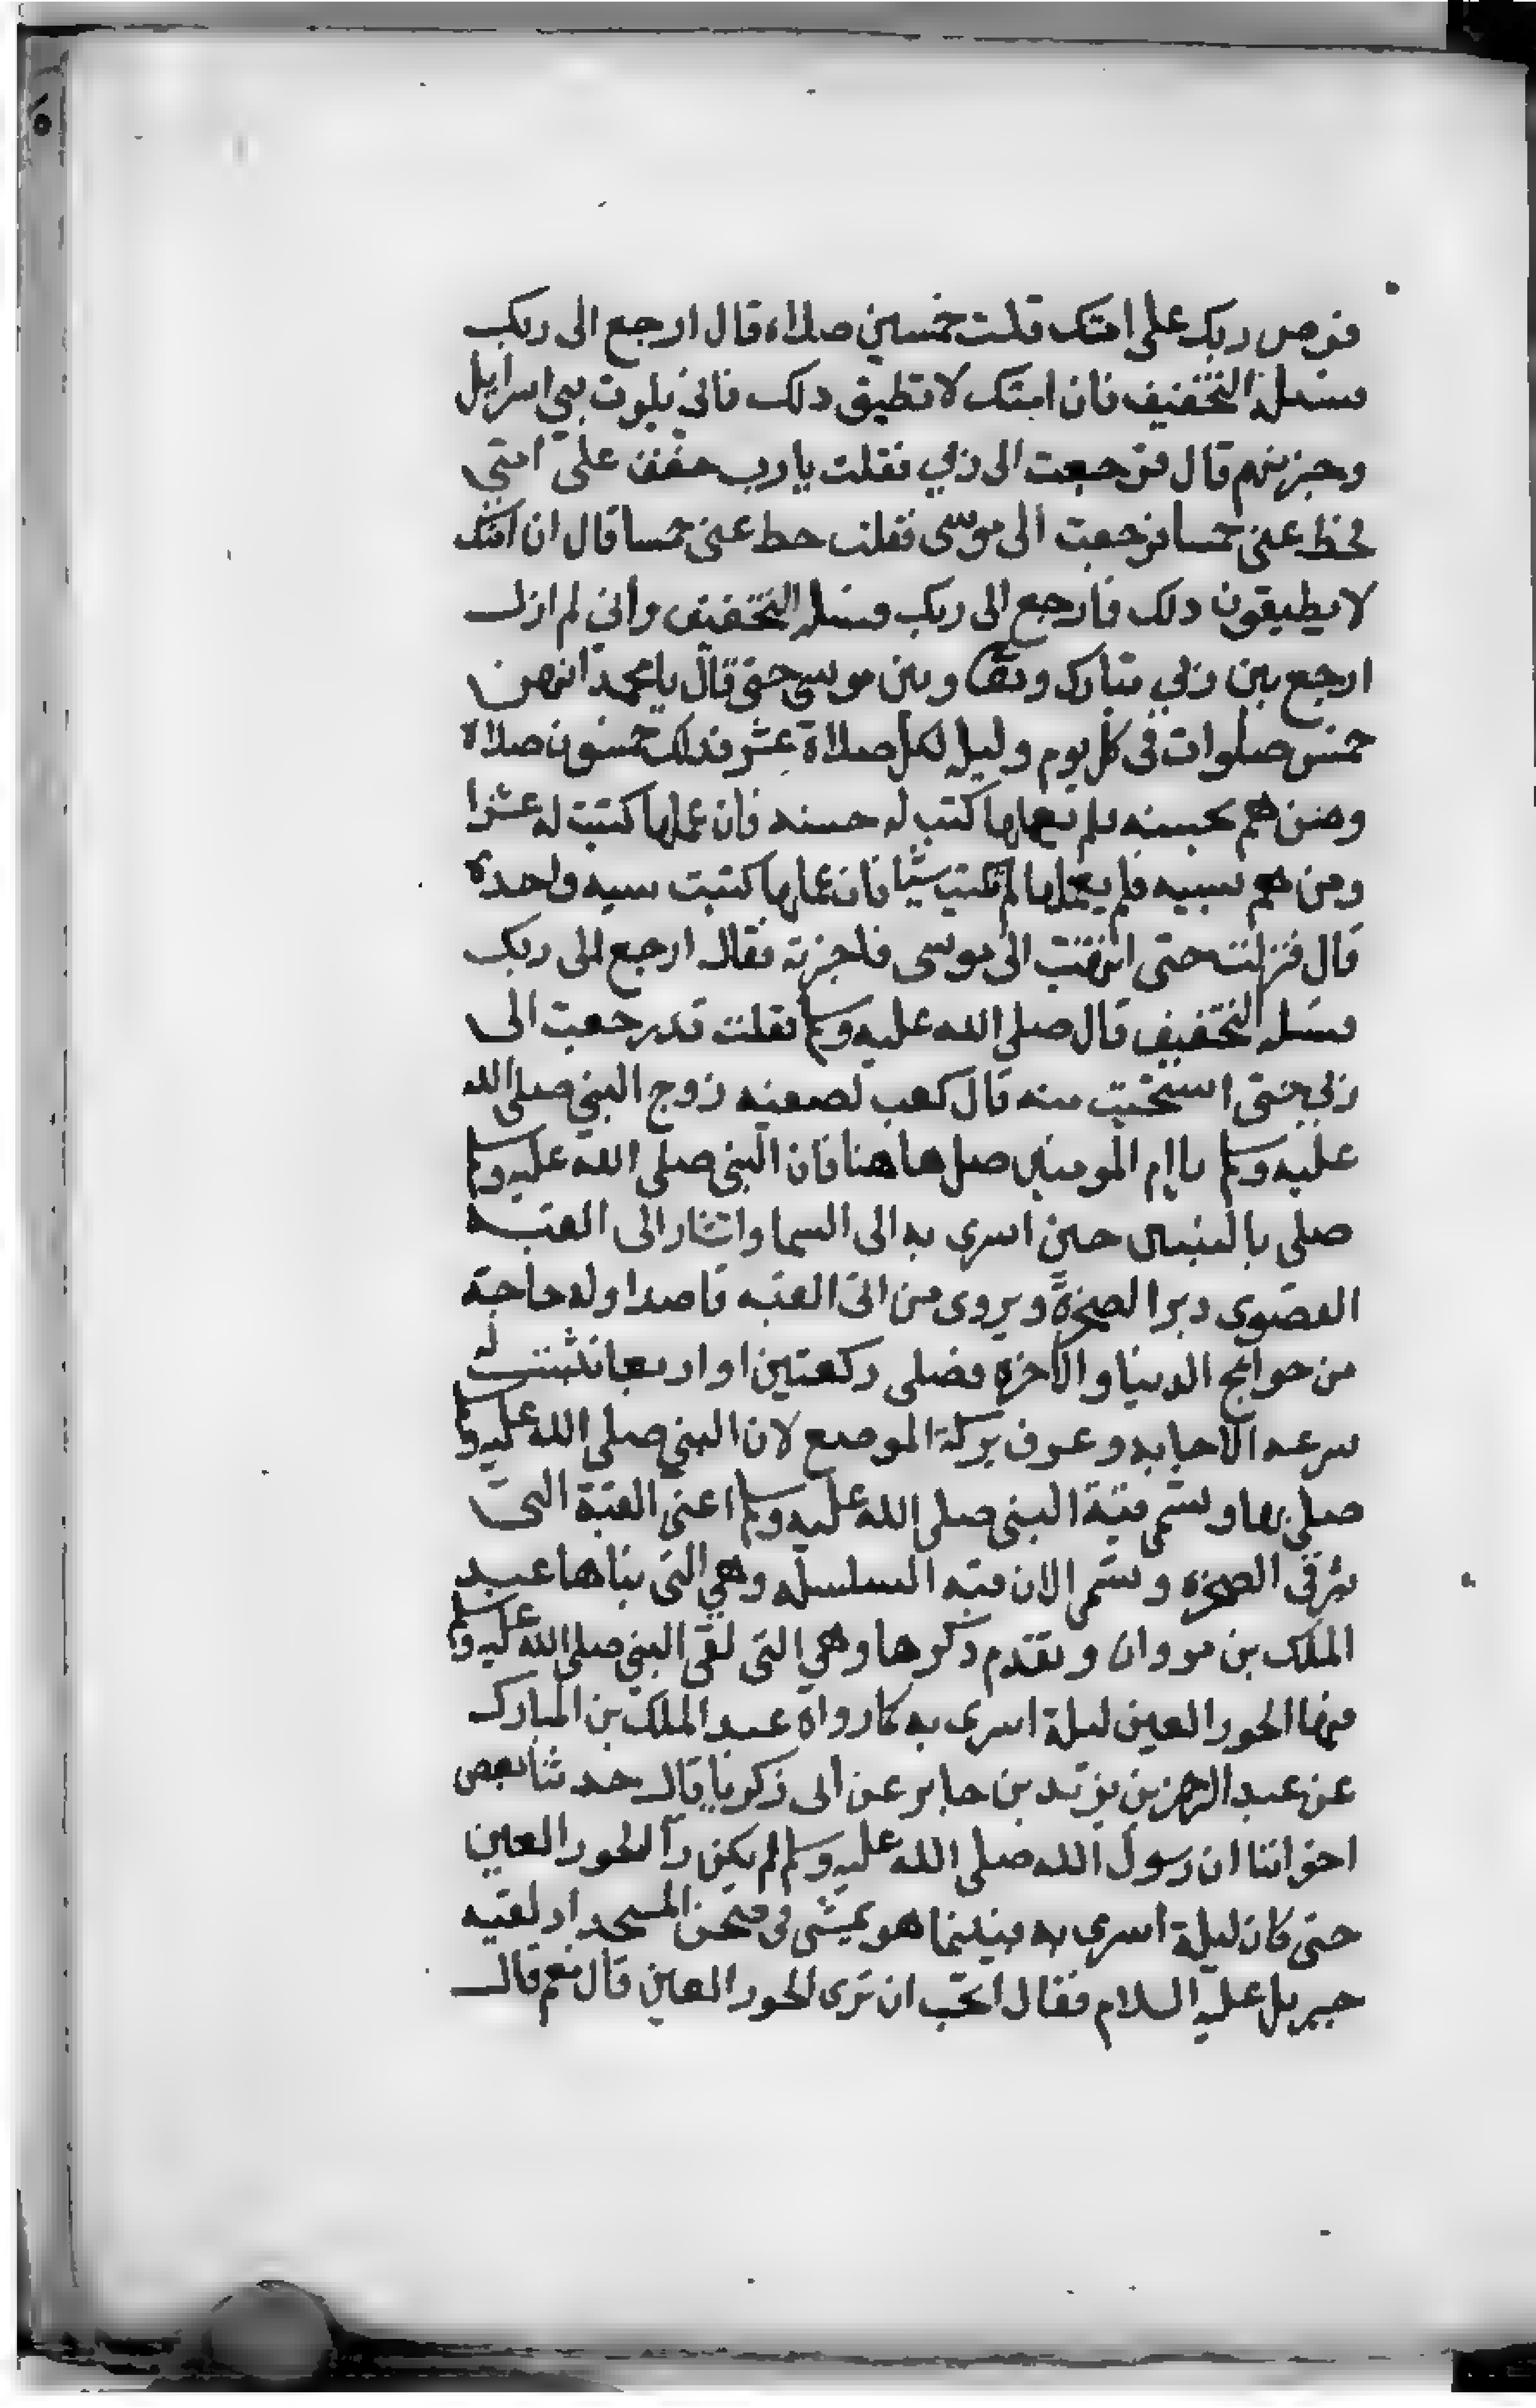 ١٥
فرض ربك على امتك قلت خمسين صلاه قال ارجع الى ربك
فسله التخفيف فان امتك لا تطيق ذلك فاني بلوت بني اسرايل
وخبرتهم قال فرجعت الى ربي فقلت يا رب خفف على امتي
فحط عني خمسا فرجعت الى موسى فقلت حط عني خمسا قال ان امتك
لا يطيقون ذلك فارجع الى ربك فسله التخفيف واني لم ازل
ارجع بين ربي تبارك وتعا وبين موسى حتى قال يا محمد انهن
خمس صلوات في كل يوم وليله لكل صلاة عشر فذلك خمسون صلاة
ومن هم بحسنه فلم يعملها كتب له حسنه فان عملها كتبت له عشرا
ومن هم بسيه فلم يعملها لم تكتب شيا فان عملها كتبت سيه واحدة
قال فنزلت حتى انتهيت الى موسى فاخبرته فقال ارجع الى ربك
فسله التخفيف قال صلى الله عليه وسلم فقلت قد رجعت الى
ربي حتى استحيت منه قال كعب لصفيه زوج النبي صلى الله
عليه وسلم ياام المومنين صل هاهنا فان النبي صلى الله عليه وسلم
صلى بالنبيين حين اسرى به الى السما واشار الى القبه
القصوى دبر الصخرة ويروى من اتى القبه قاصدا وله حاجة
من حوايج الدنيا والاخره فصلى ركعتين او اربعا تثبت له
سرعه الاجابه وعرف بركة الموضع لان النبي صلى الله عليه وسلم
صلى بها وتسمى قبة النبي صلى الله عليه وسلم اعني القبة التي
شرقى الصخره وتسمى الان قبه السلسله وهي التى بناها عبد
الملك بن مروان وتقدم ذكرها وهي التى لقى النبي صلى الله عليه وسلم
فيها الحور العين ليلة اسرى به كما رواه عبد الملك بن المبارك
عن عبد الرحمن بن يزيد بن جابر عن ابى زكريا قال حدثنا بعض
اخواننا ان رسول الله صلى الله عليه وسلم لم يكن رآ الحور العين
حتى كان ليلة اسرى به فبينما هو يمشى فى صحن المسجد اذ لقيه
جبريل عليه السلام فقال اتحب ان ترى الحور العين قال نعم قال